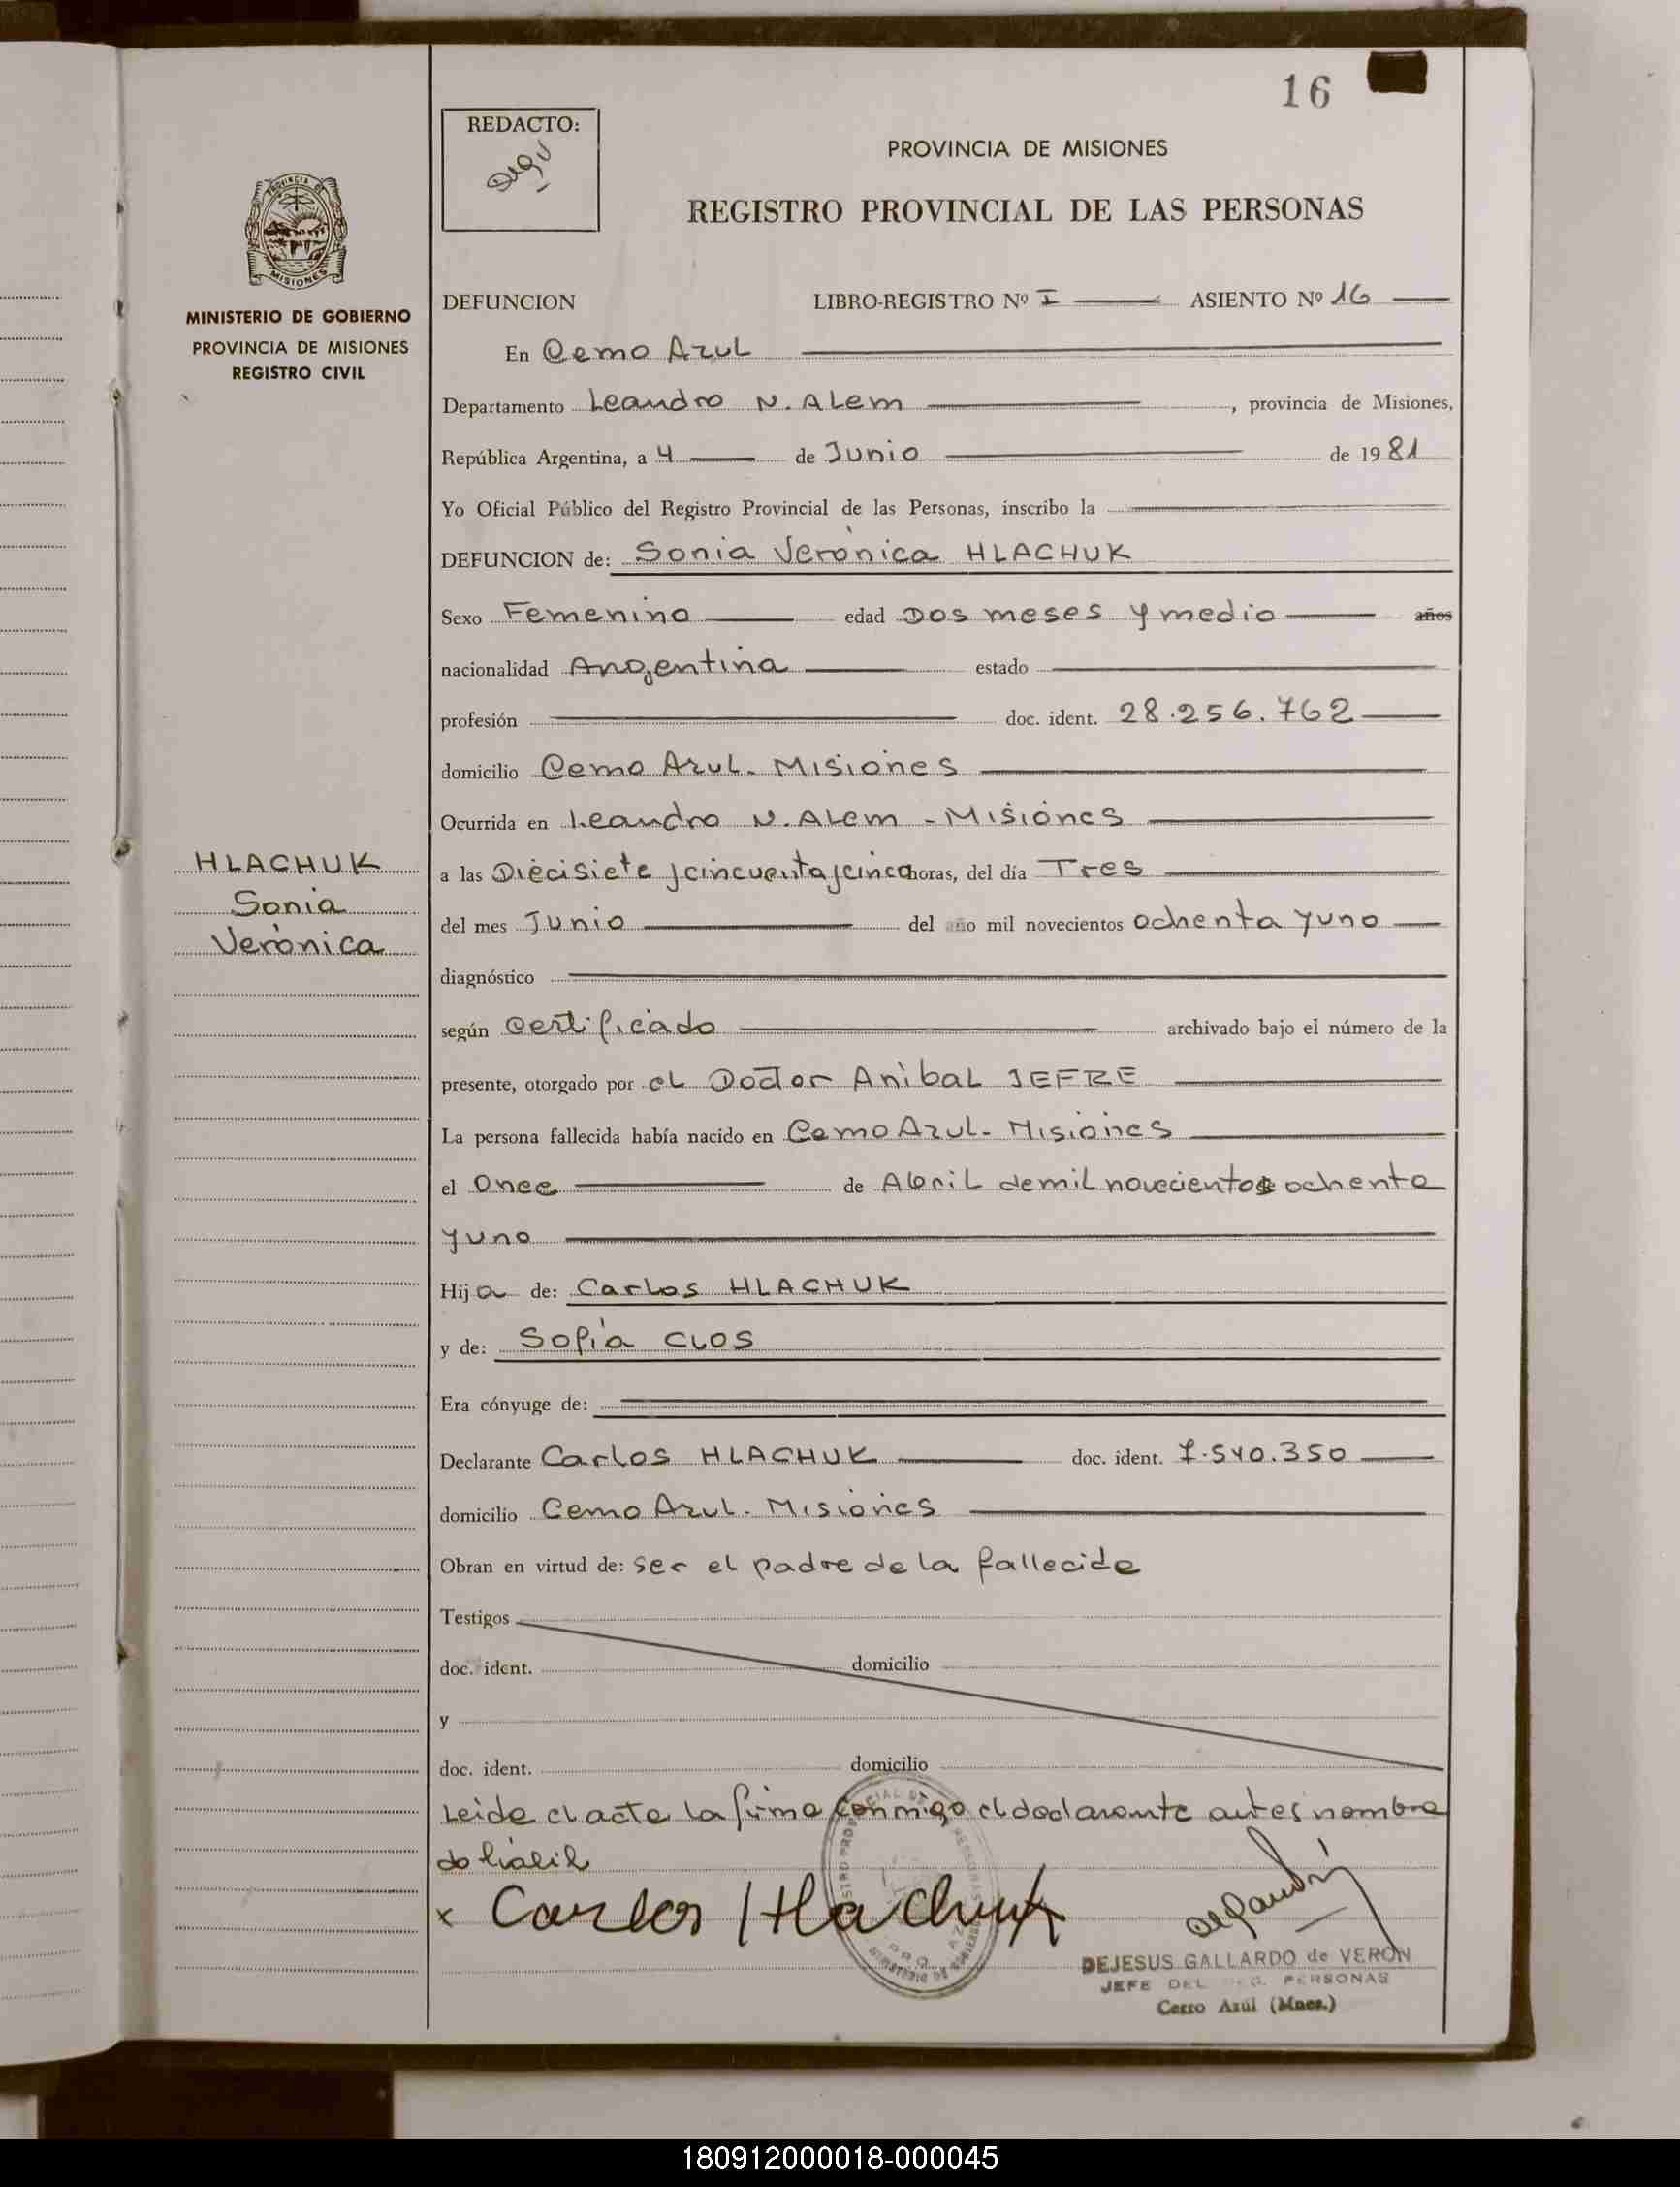 16
REDACTO:
PROVINCIA DE MISIONES
REGISTRO PROVINCIAL DE LAS PERSONAS
PROVINCIA DE
MISIONES
MINISTERIO DE GOBIERNO
PROVINCIA DE MISIONES
REGISTRO CIVIL
DEFUNCION LIBRO-REGISTRO Nº I ASIENTO Nº 16
En Cerro Azul
Departamento Leandro N. Alem, provincia de Misiones,
República Argentina, a 4 de Junio de 1981
Yo Oficial Público del Registro Provincial de las Personas, inscribo la
DEFUNCION de: Sonia Verónica HLACHUK
Sexo Femenino edad Dos meses y medio años
nacionalidad Argentina estado
profesión doc. ident. 28.256.762
domicilio Cerro Azul. Misiones
Ocurrida en Leandro N. Alem - Misiones
HLACHUK
Sonia
Verónica
a las Diecisiete y cincuenta y cinco horas, del día Tres
del mes Junio del año mil novecientos ochenta y uno
diagnóstico
según certificado archivado bajo el número de la
presente, otorgado por el Doctor Anibal JEFRE
La persona fallecida había nacido en Cerro Azul. Misiones
el Once de Abril de mil novecientos ochenta
y uno
Hija de: Carlos HLACHUK
y de: Sofía CLOS
Era cónyuge de:
Declarante Carlos HLACHUK doc. ident. 7.540.350
domicilio Cerro Azul. Misiones
Obran en virtud de: ser el padre de la fallecida
Testigos
doc. ident. domicilio
y
doc. ident. domicilio
Leida el acta la firma conmigo el declarante antes nombra
do
x Carlos Hlachuk
DEJESUS GALLARDO de VERON
JEFE DEL REG. PERSONAS
Cerro Azul (Mnes.)
180912000018-000045